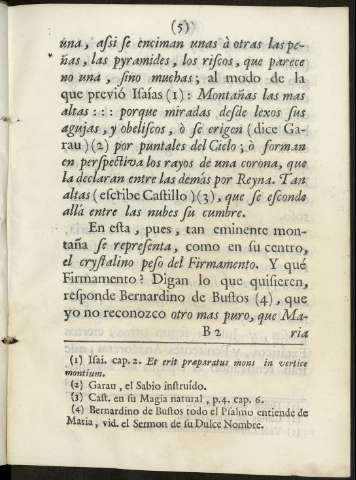 (5)
una, assi se enciman unas à otras las pe-
ñas, las pyramides, los riscos, que parece
no una, sino muchas; al modo de la
que previó Isaías (1): Montañas las mas
altas::: porque miradas desde lexos sus
agujas, y obeliscos, ò se erigen (dice Ga-
rau)(2) por puntales del Cielo; ò forman
en perspectiva los rayos de una corona, que
la declaran entre las demás por Reyna. Tan
altas (escribe Castillo)(3), que se esconde
allá entre las nubes su cumbre.
En esta, pues, tan eminente mon-
taña se representa, como en su centro,
el crystalino peso del Firmamento. Y qué
Firmamento? Digan lo que quisieren,
responde Bernardino de Bustos (4), que
yo no reconozco otro mas puro, que Ma-
B 2 ria
(1) Isai. cap. 2. Et erit præparatus mons in vertice
montium.
(2) Garau, el Sabio instruído.
(3) Cast. en su Magia natural, p.4. cap. 6.
(4) Bernardino de Bustos todo el Psalmo entiende de
Maria, vid. el Sermon de su Dulce Nombre.